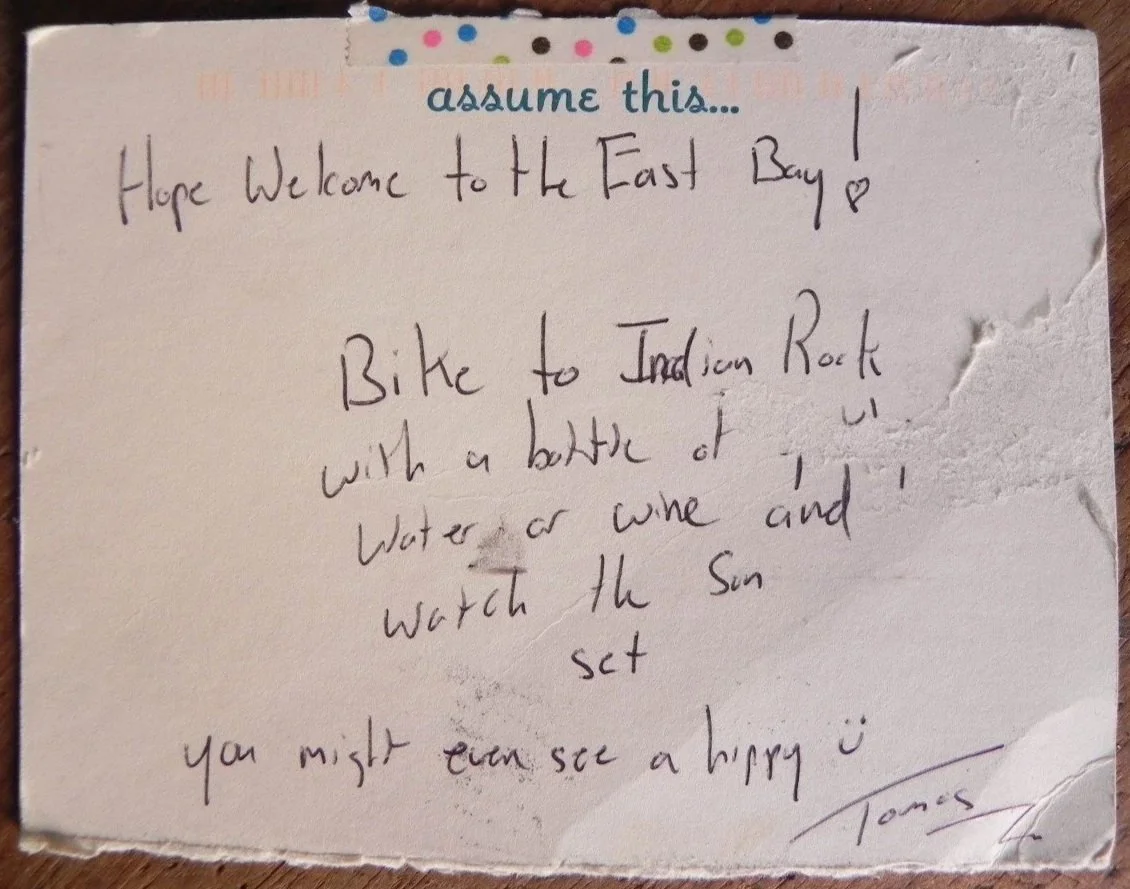 assume this...
Hope Welcome to the East Bay!
Bike to Indian Rock
with a bottle of
Water or wine and
watch the Sun
set
you might even see a hippy
Tomas